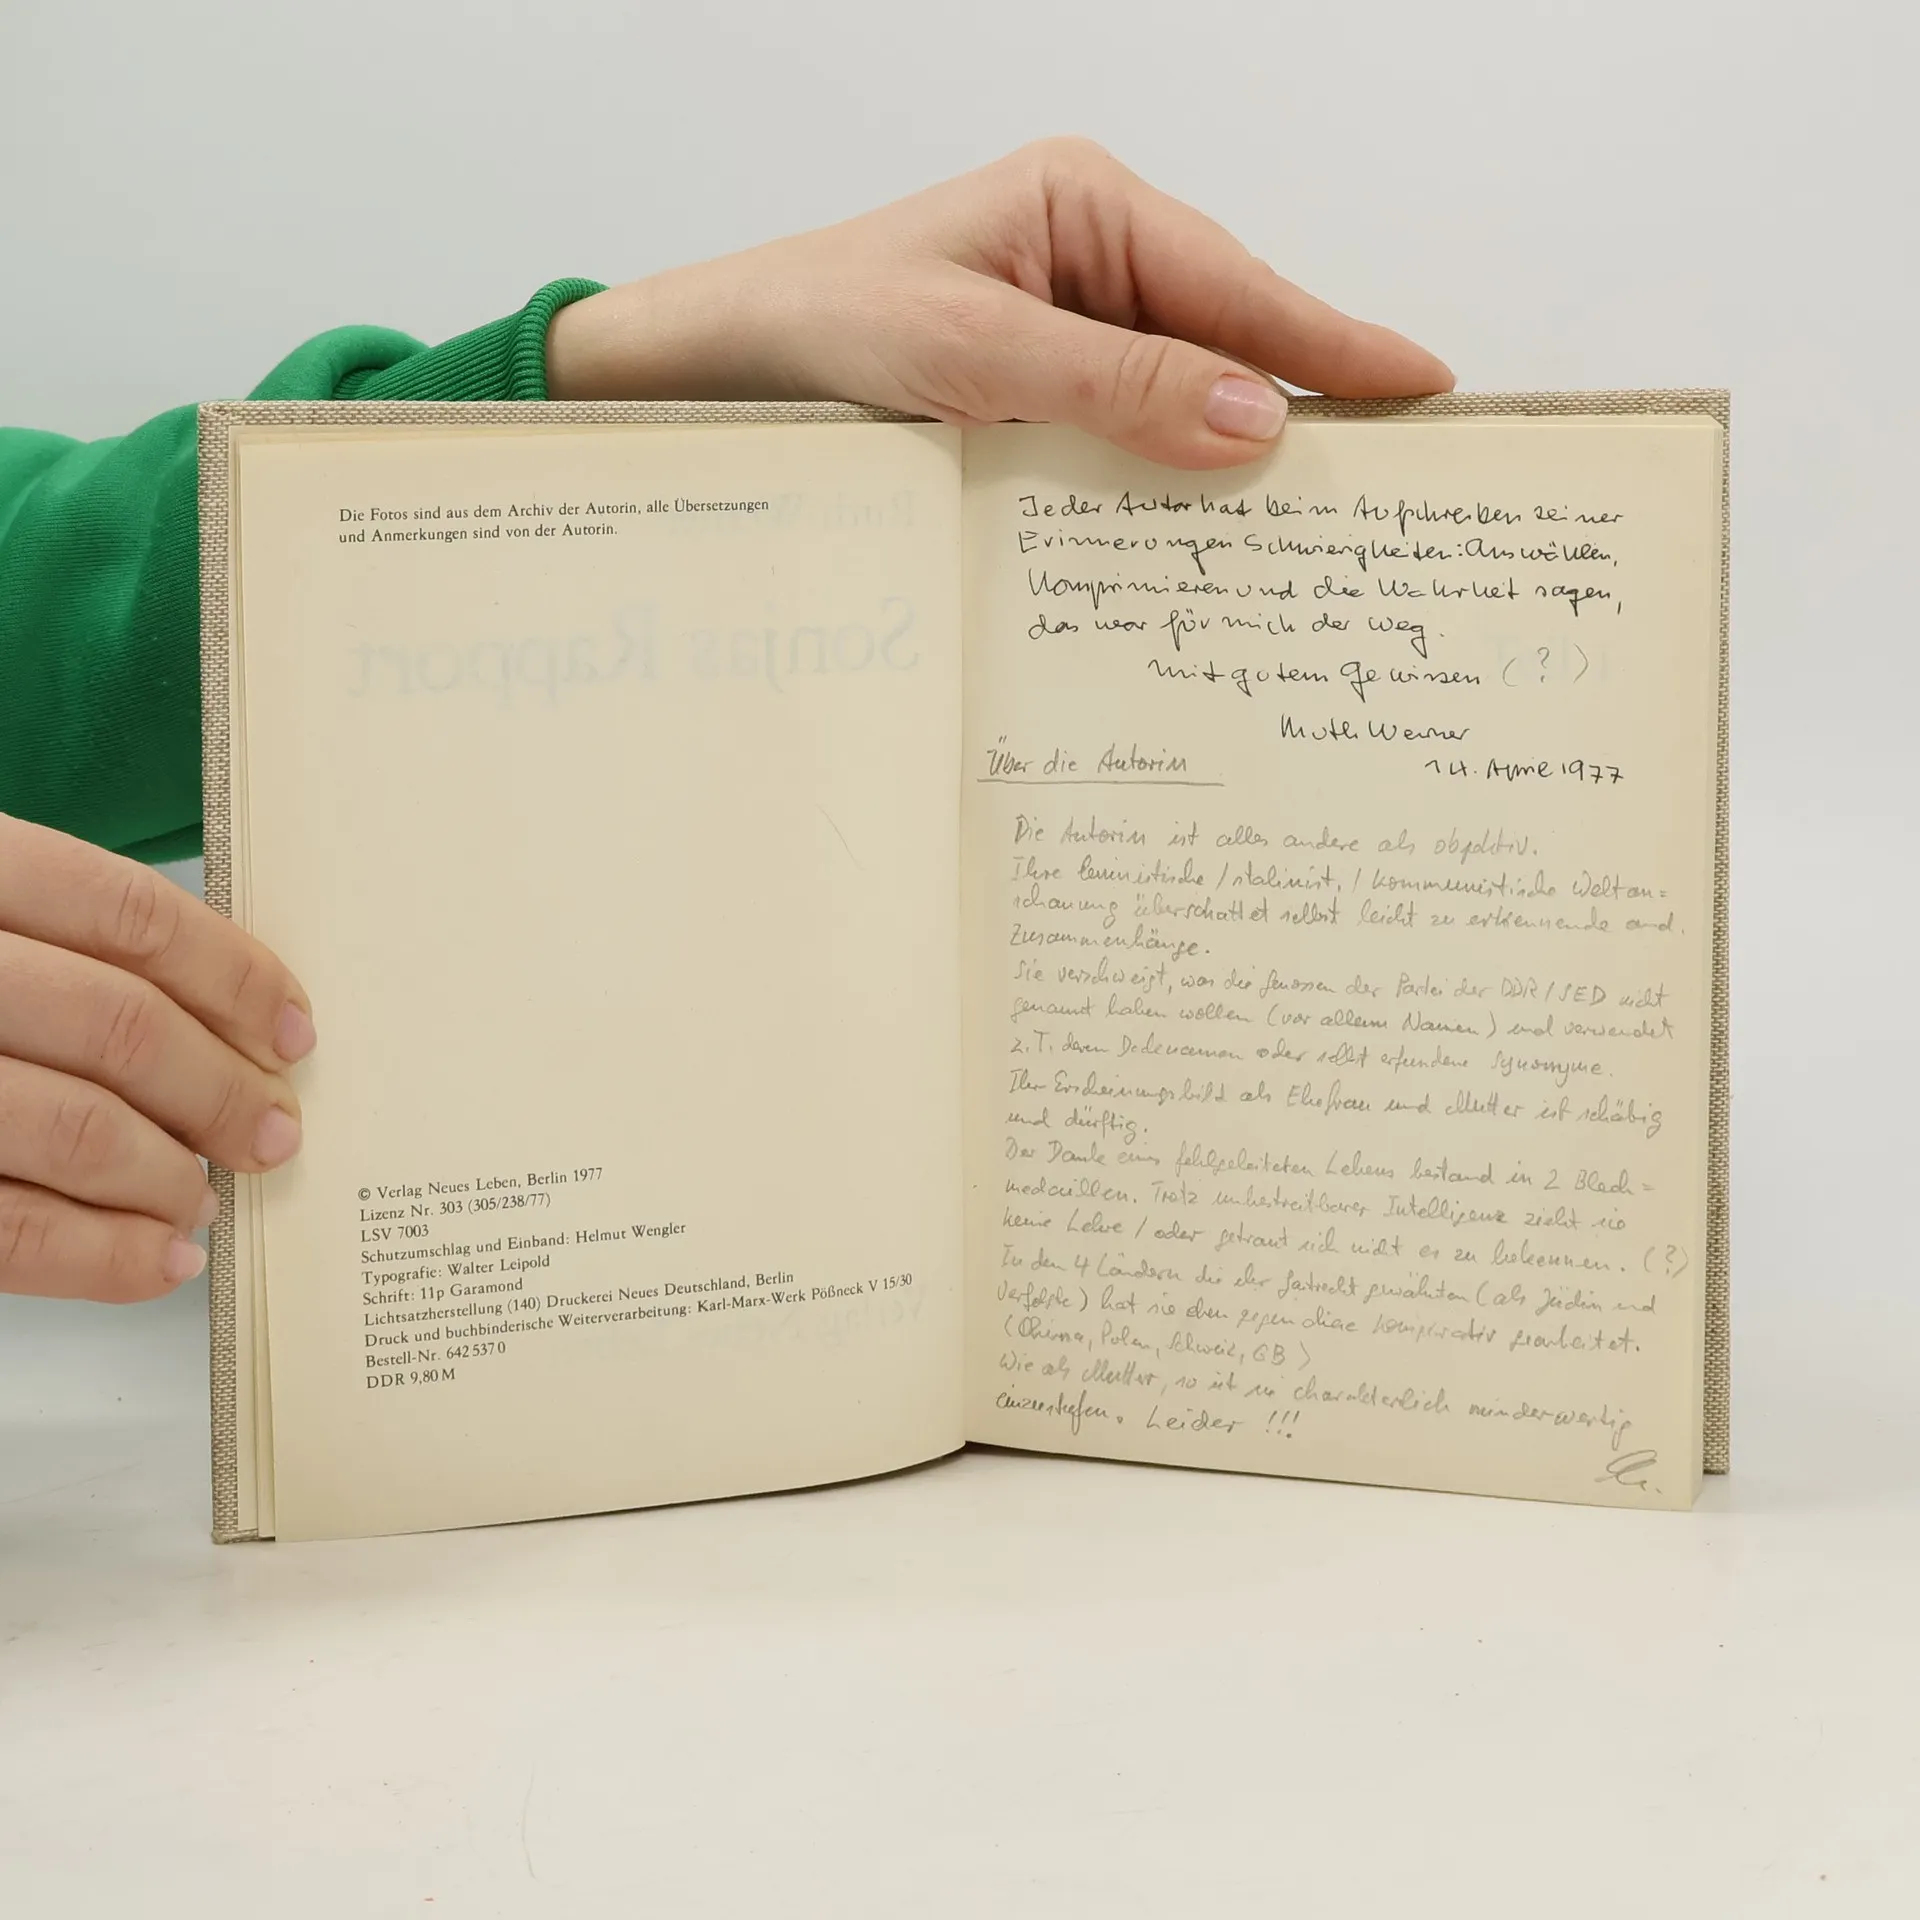 Die Fotos sind aus dem Archiv der Autorin, alle Übersetzungen
und Anmerkungen sind von der Autorin.
Sonjas Rapport
© Verlag Neues Leben, Berlin 1977
Lizenz Nr. 303 (305/238/77)
LSV 7003
Schutzumschlag und Einband: Helmut Wengler
Typografie: Walter Leipold
Schrift: 11p Garamond
Lichtsatzherstellung (140) Druckerei Neues Deutschland, Berlin
Druck und buchbinderische Weiterverarbeitung: Karl-Marx-Werk Pößneck V 15/30
Bestell-Nr. 642 537 0
DDR 9,80 M
Jeder Autor hat beim Aufschreiben seiner
Erinnerungen Schwierigkeiten: Auswählen,
Komprimieren und die Wahrheit sagen,
das war für mich der Weg.
mit gutem Gewissen (?)
Ruth Werner
14. April 1977
Über die Autorin
Die Autorin ist alles andere als objektiv.
Ihre leninistische / stalinist. / kommunistische Weltan=
schauung überschattet selbst leicht zu erkennende and.
Zusammenhänge.
Sie verschweigt, was die Genossen der Partei der DDR / SED nicht
genannt haben wollen (vor allem Namen) und verwendet
z.T. deren Decknamen oder selbst erfundene Synonyme.
Ihr Erscheinungsbild als Ehefrau und Mutter ist schäbig
und dürftig.
Der Dank eines fehlgeleiteten Lebens bestand in 2 Blech=
medaillen. Trotz unbestreitbarer Intelligenz zieht sie
keine Lehre / oder getraut sich nicht es zu bekennen. (?)
In den 4 Ländern die ihr Gastrecht gewährten (als Jüdin und
Verfolgte) hat sie eben gegen diese konspirativ gearbeitet.
(China, Polen, Schweiz, GB)
Wie als Mutter, so ist sie charakterlich minderwertig
einzustufen. Leider !!!